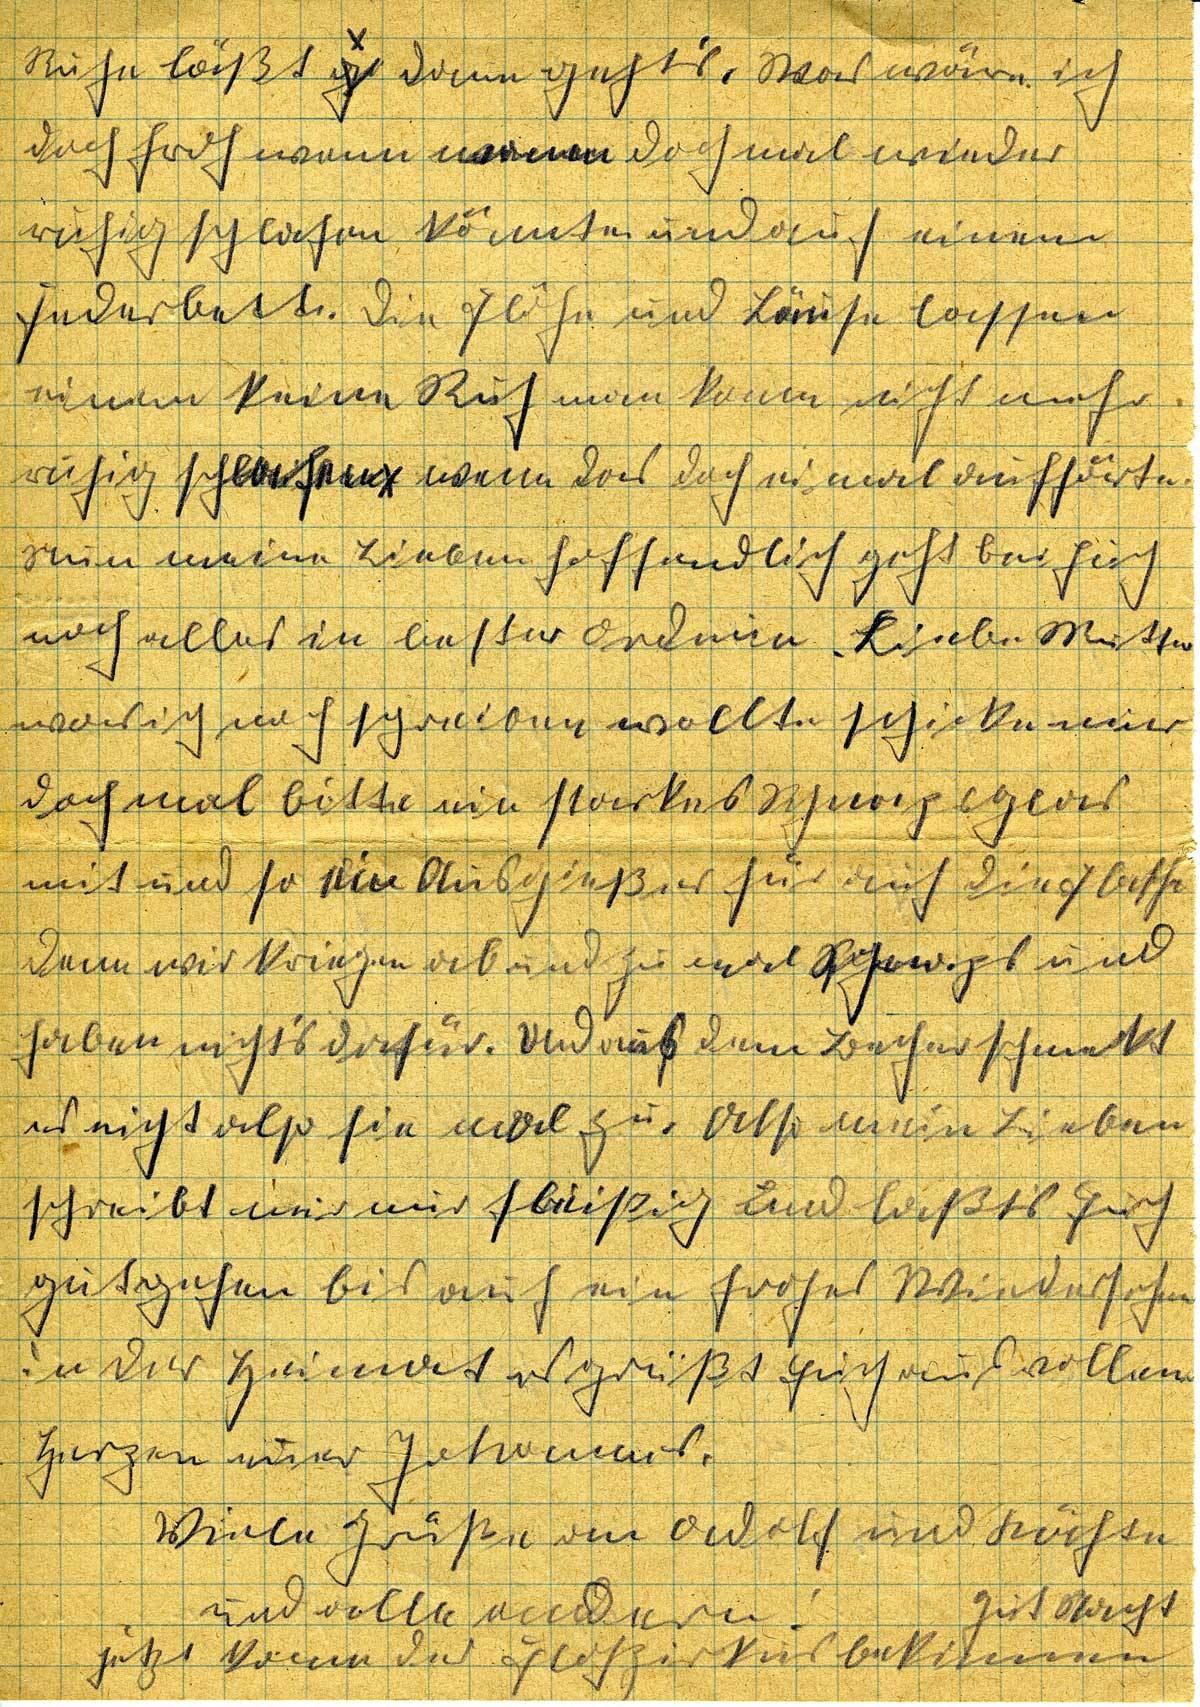 Ruhe läßt dann geht's. Was wäre ich
doch froh wenn man doch mal wieder
ruhig schlafen könnte und auf einem
Federbett. Die Flöhe und Läuse lassen
einem keine Ruh man kann nicht mehr
ruhig schlafen wenn das doch einmal aufhörte.
Nun meine Lieben hoffendlich geht bei Euch
noch alles in bester Ordnun. Liebe Mutter
was ich noch schreiben wollte schicke mir
doch mal bitte ein starkes Schnapsglas
mit und so ein Ausgießer für auf die Flasche
denn wir kriegen ab und zu mal Schnaps und
haben nicht's dafür. Und aus dem Becher schmekt
es nicht also sie mal zu. Also mein Lieben
schreibt mir nur fleißig und laßt's Euch
gutgehen bis auf ein frohes Wiedersehen
in der Heimat es grüßt Euch aus vollem
Herzen euer Johannes.
Viele Grüße an Adolf und
und alle andern! Gut Nacht
jetzt kann der Flohzirkus bekinnen